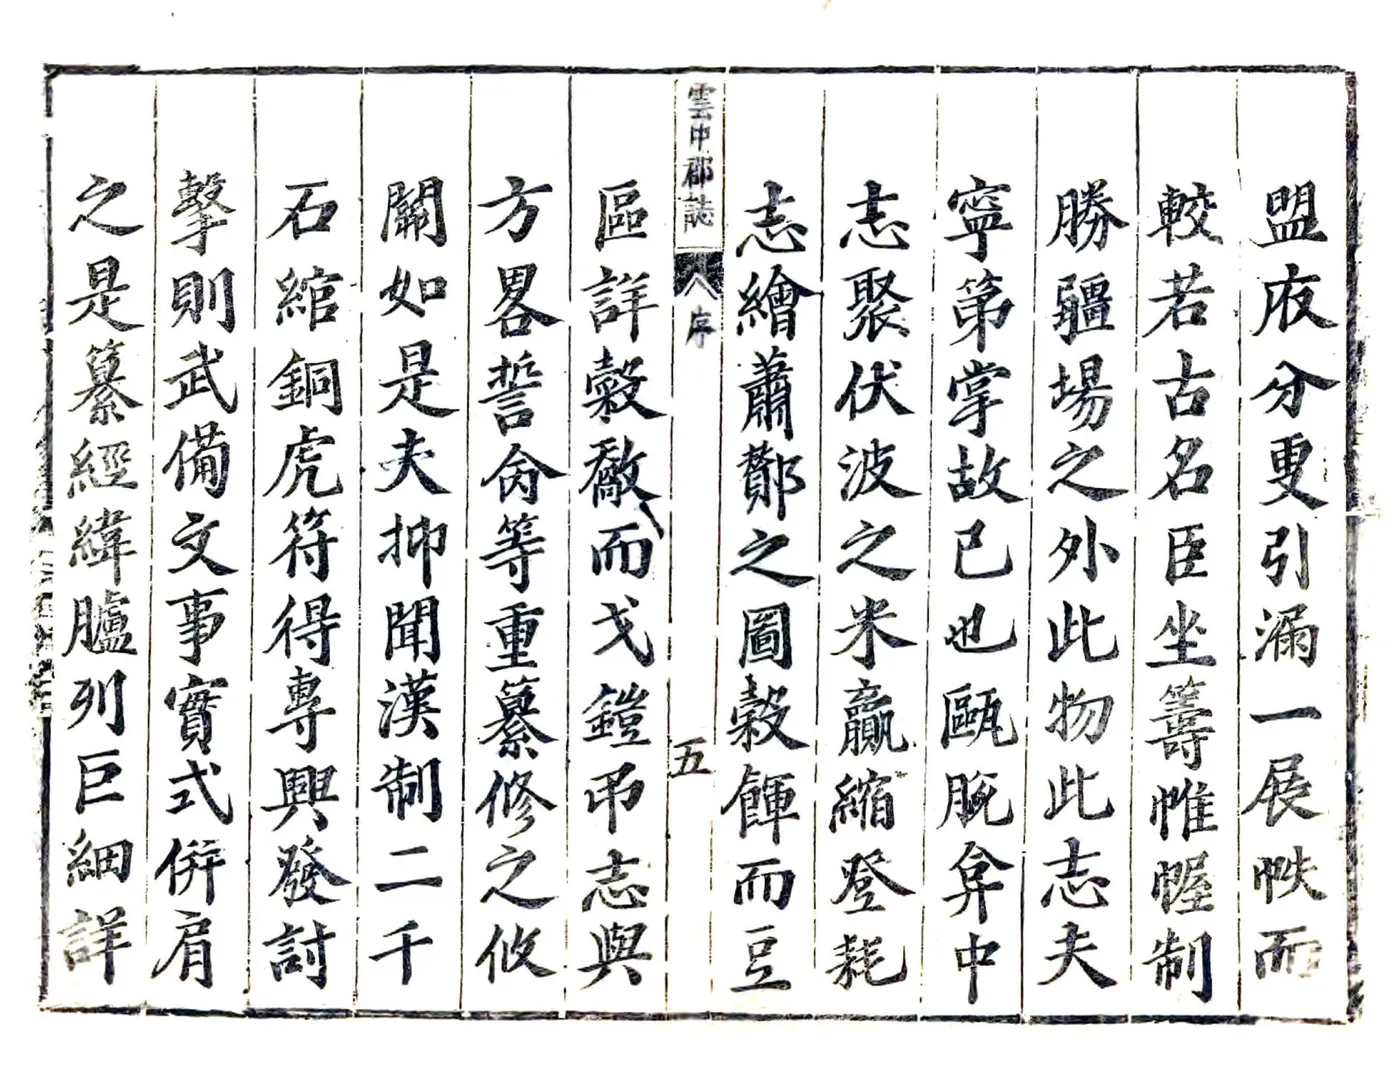 盟府分更引漏一展帙而
較若古名臣坐籌帷幄制
勝疆場之外此物此志夫
寧第掌故已也甌脫弁中
志聚伏波之米贏縮登耗
志繪蕭鄭之圖穀餫而豆
雲中郡誌
序
五
區詳穀敵而戈鎧帀志與
方畧誓侖等重纂修之攸
關如是夫抑聞漢制二千
石綰銅虎符得專興發討
擊則武備文事實式併肩
之是纂經緯臚列巨細詳